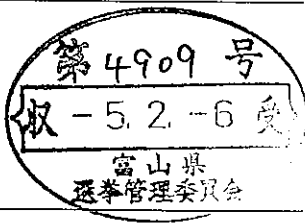 第4909号
収 -5.2.-6 受
富山県
選挙管理委員会